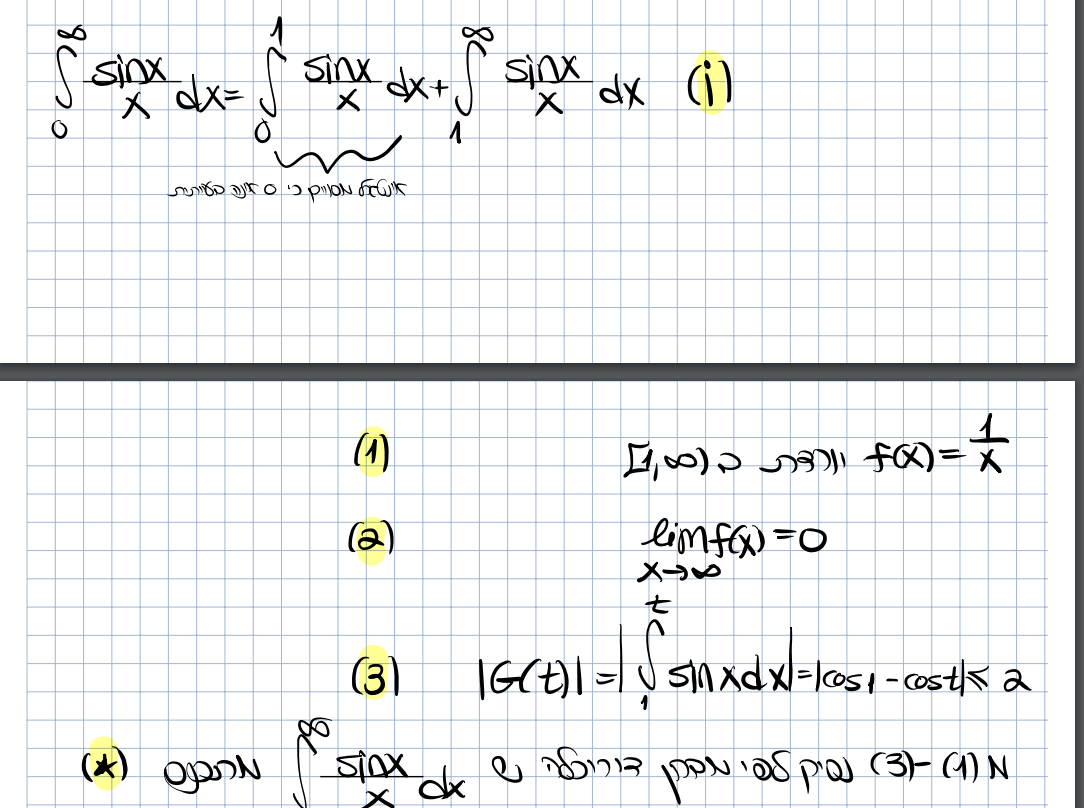 ∫₀^∞ sinx/x dx = ∫₀¹ sinx/x dx + ∫₁^∞ sinx/x dx (i)
אינטגרל מסויים כי 0 אינה בעייתית
f(x) = 1/x יורדת ב [1,∞) (1)
lim_{x→∞} f(x) = 0 (2)
(3) |G(t)| = |∫₁ᵗ sinxdx| = |cos1 - cost| ≤ 2
מ (1)-(3) נסיק לפי מבחן דיריכלה ש ∫^∞ sinx/x dx מתכנס (★)